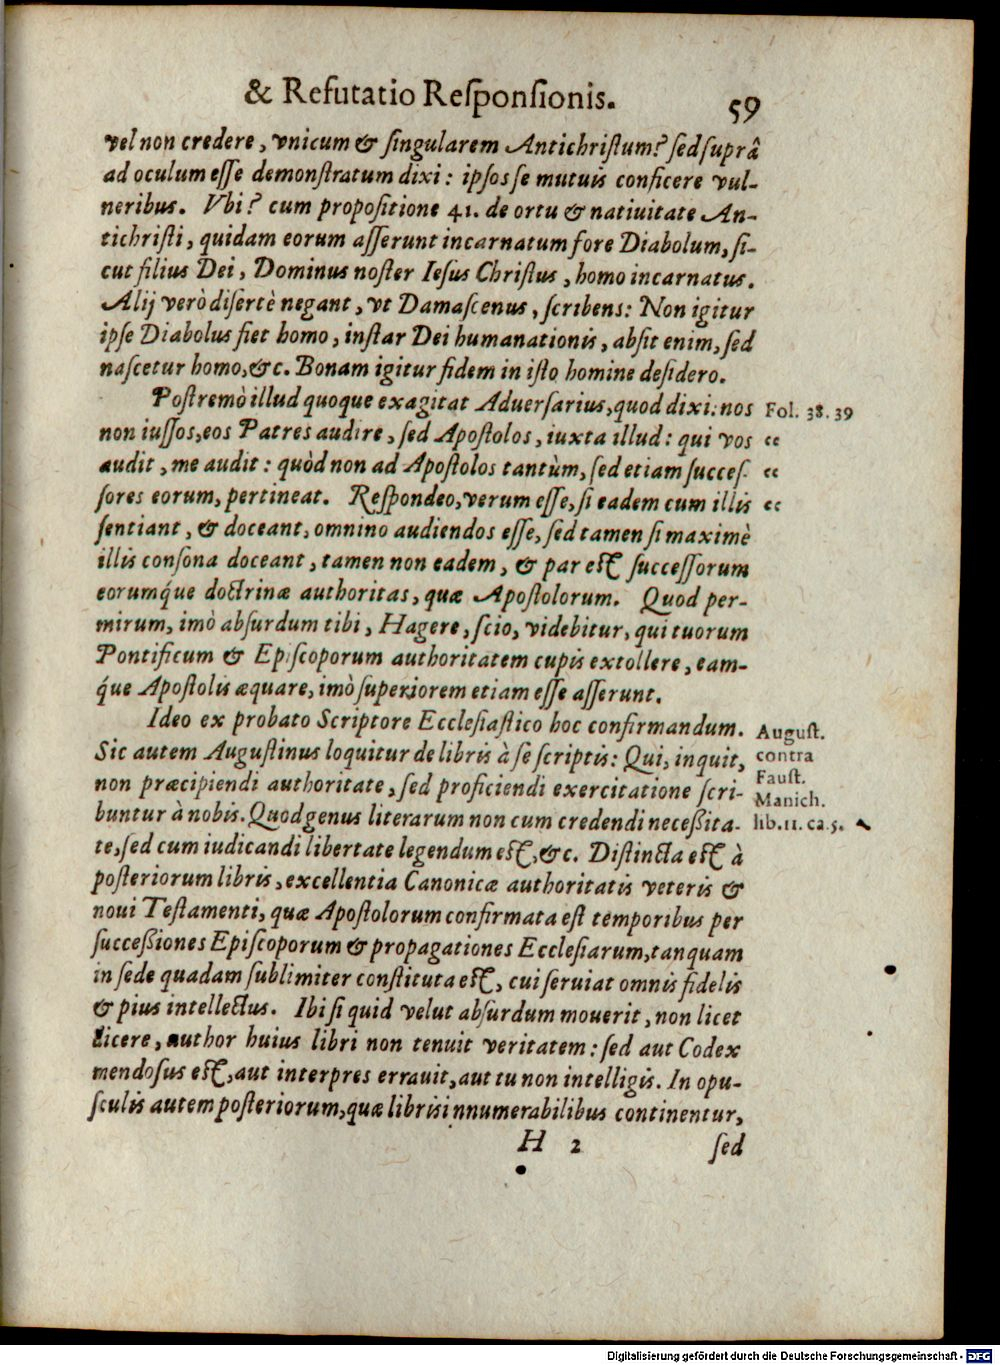 & Refutatio Responsionis. 59
vel non credere, vnicum & singularem Antichristum? sed suprâ
ad oculum esse demonstratum dixi: ipsos se mutuis conficere vul-
neribus. Vbi? cum propositione 41. de ortu & natiuitate An-
tichristi, quidam eorum asserunt incarnatum fore Diabolum, si-
cut filius Dei, Dominus noster Iesus Christus, homo incarnatus.
Alij verò disertè negant, vt Damascenus, scribens: Non igitur
ipse Diabolus fiet homo, instar Dei humanationis, absit enim, sed
nascetur homo, &c. Bonam igitur fidem in isto homine desidero.
Postremò illud quoque exagitat Aduersarius, quod dixi: nos
Fol. 38. 39
non iussos, eos Patres audire, sed Apostolos, iuxta illud: qui vos
“
audit, me audit: quòd non ad Apostolos tantùm, sed etiam succes-
“
sores eorum, pertineat. Respondeo, verum esse, si eadem cum illis
“
sentiant, & doceant, omnino audiendos esse, sed tamen si maximè
illis consona doceant, tamen non eadem, & par est successorum
eorumq́ue doctrinæ authoritas, quæ Apostolorum. Quod per-
mirum, imò absurdum tibi, Hagere, scio, videbitur, qui tuorum
Pontificum & Episcoporum authoritatem cupis extollere, eam-
q́ue Apostolis æquare, imò superiorem etiam esse asserunt.
Ideo ex probato Scriptore Ecclesiastico hoc confirmandum.
Sic autem Augustinus loquitur de libris à se scriptis: Qui, inquit,
non præcipiendi authoritate, sed proficiendi exercitatione scri-
buntur à nobis. Quod genus literarum non cum credendi necessita-
te, sed cum iudicandi libertate legendum est, &c. Distincta est à
August.
contra
Faust.
Manich.
lib. 11. ca. 5.
posteriorum libris, excellentia Canonicæ authoritatis veteris &
noui Testamenti, quæ Apostolorum confirmata est temporibus per
successiones Episcoporum & propagationes Ecclesiarum, tanquam
in sede quadam sublimiter constituta est, cui seruiat omnis fidelis
& pius intellectus. Ibi si quid velut absurdum mouerit, non licet
dicere, author huius libri non tenuit veritatem: sed aut Codex
mendosus est, aut interpres errauit, aut tu non intelligis. In opu-
sculis autem posteriorum, quæ libris innumerabilibus continentur,
H 2 sed
Digitalisierung gefördert durch die Deutsche Forschungsgemeinschaft - DFG